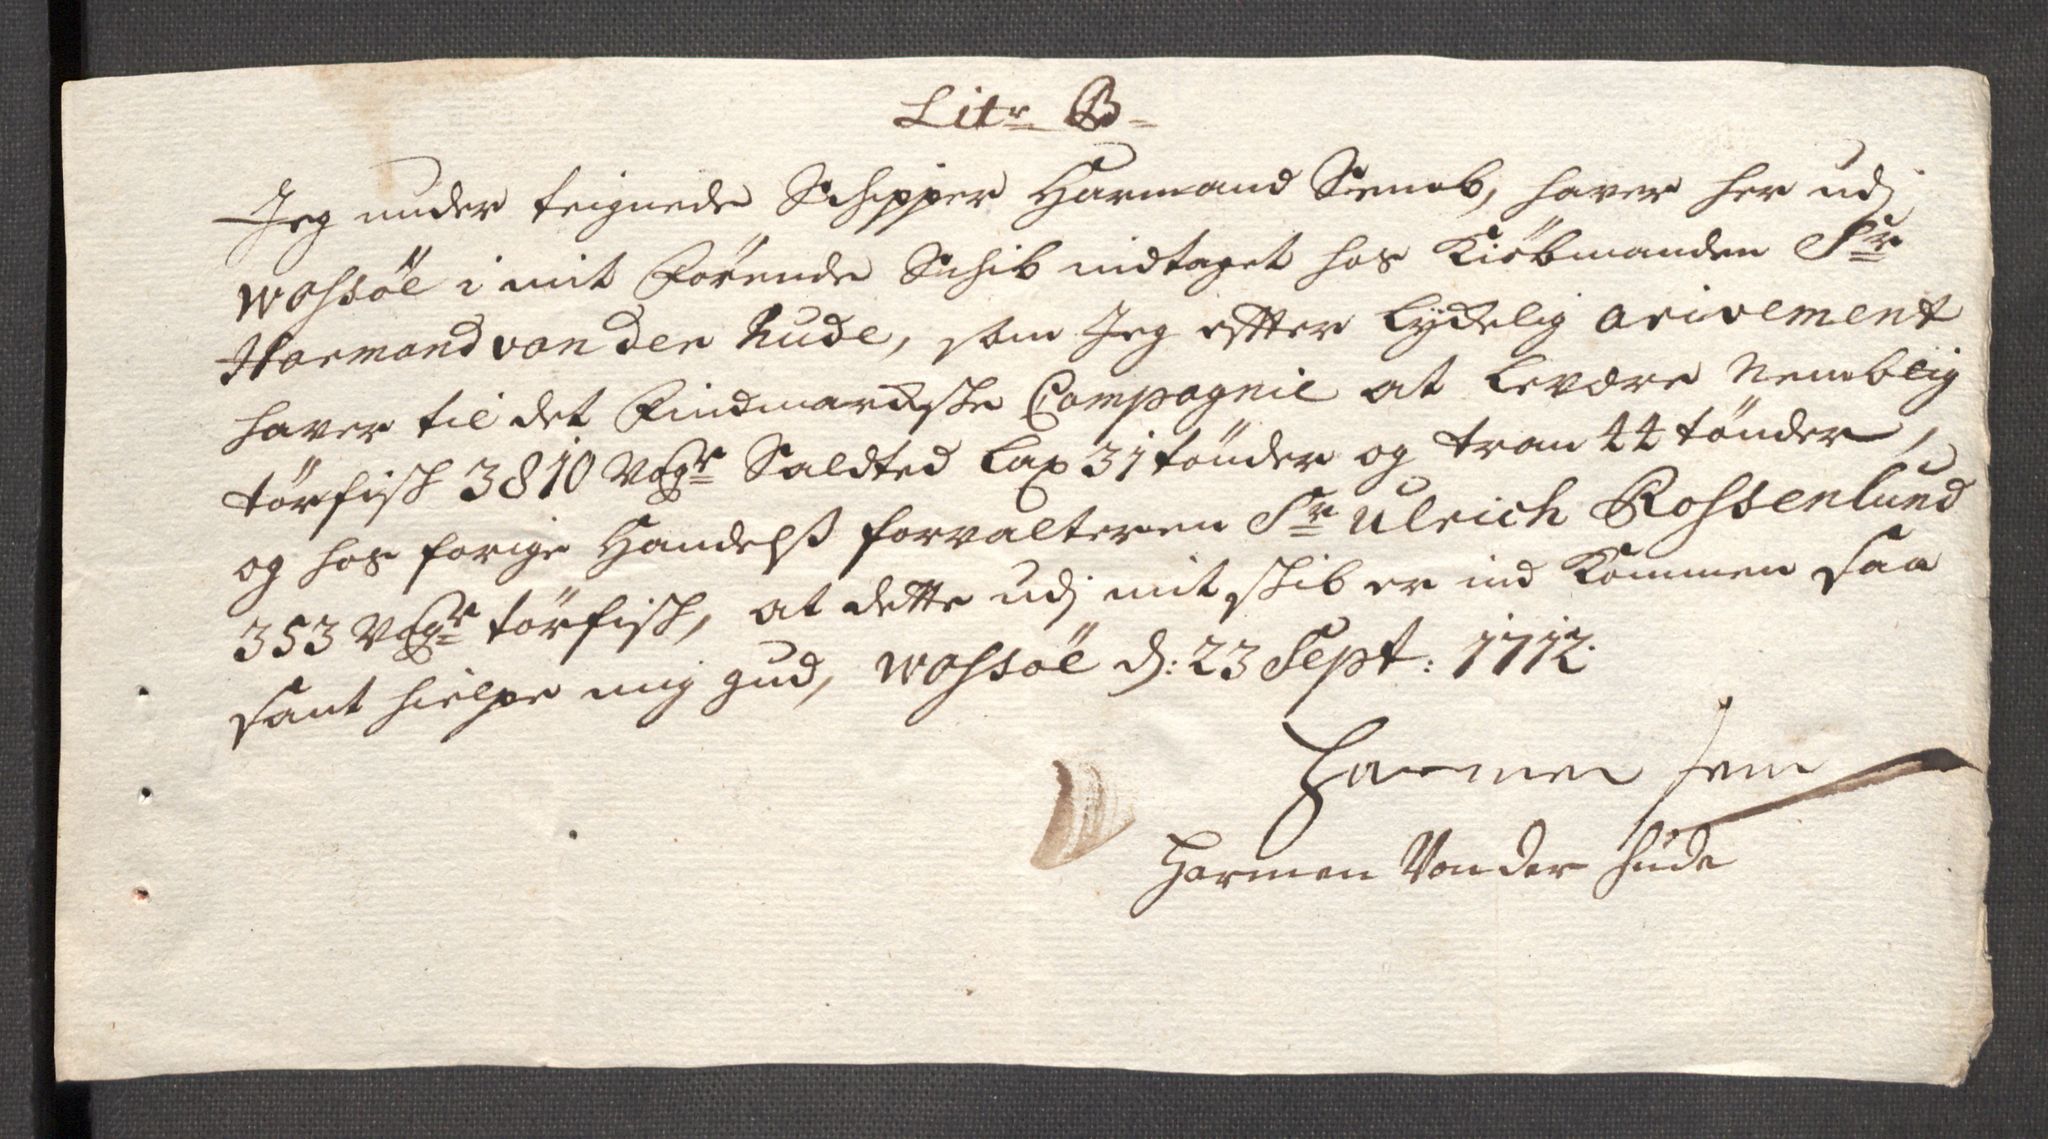 Litr B
Jeg under teignede Schipper Harmand Semb, haver her udj
Wossöe i mit Förende Schib indtaget hos Kiöbmanden Sr
Harmand van der Hude, som Jeg effter lydelig arivement
haver til det Findmarckske Compagnie at levære Nemblig
törfisk 3810 Vogr Saldted lax 31 tönder og tran 44 tönder,
og hos forige Handelss forvalteren Sr Ulrich Rossenlund
353 Vogr törfisk, at dette udj mit skib er ind Kommen saa
sant hielpe mig gud, Wossöe d: 23 Sept: 1712.
Harmen Sem
Harmen Von der Hude